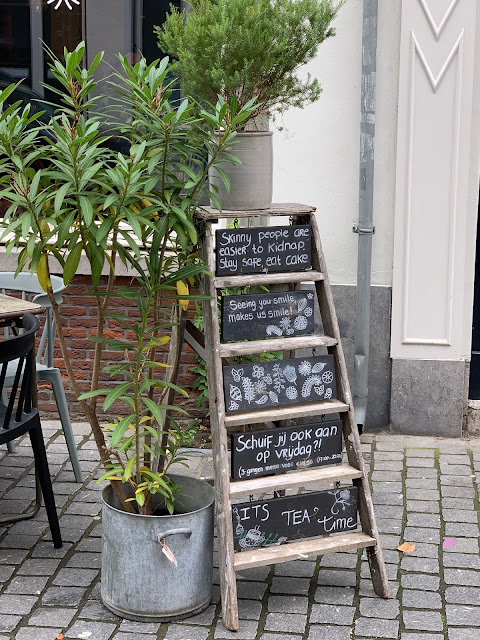 Skinny people are
easier to kidnap.
Stay safe, eat cake
Seeing you smile,
makes us smile!
Schuif jij ook aan
op vrijdag?!
(3 gangen menu voor
ITS TEA' time